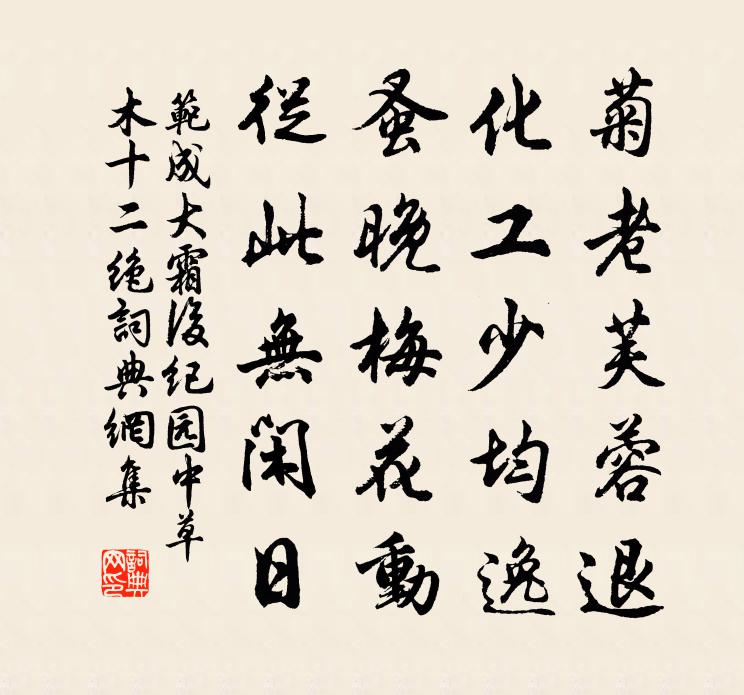 菊老芙蓉退
化工少均逸
蚤晚梅花動
從此無閑日
範成大霜後纪园中草
木十二绝詞典網集
詞典
网印